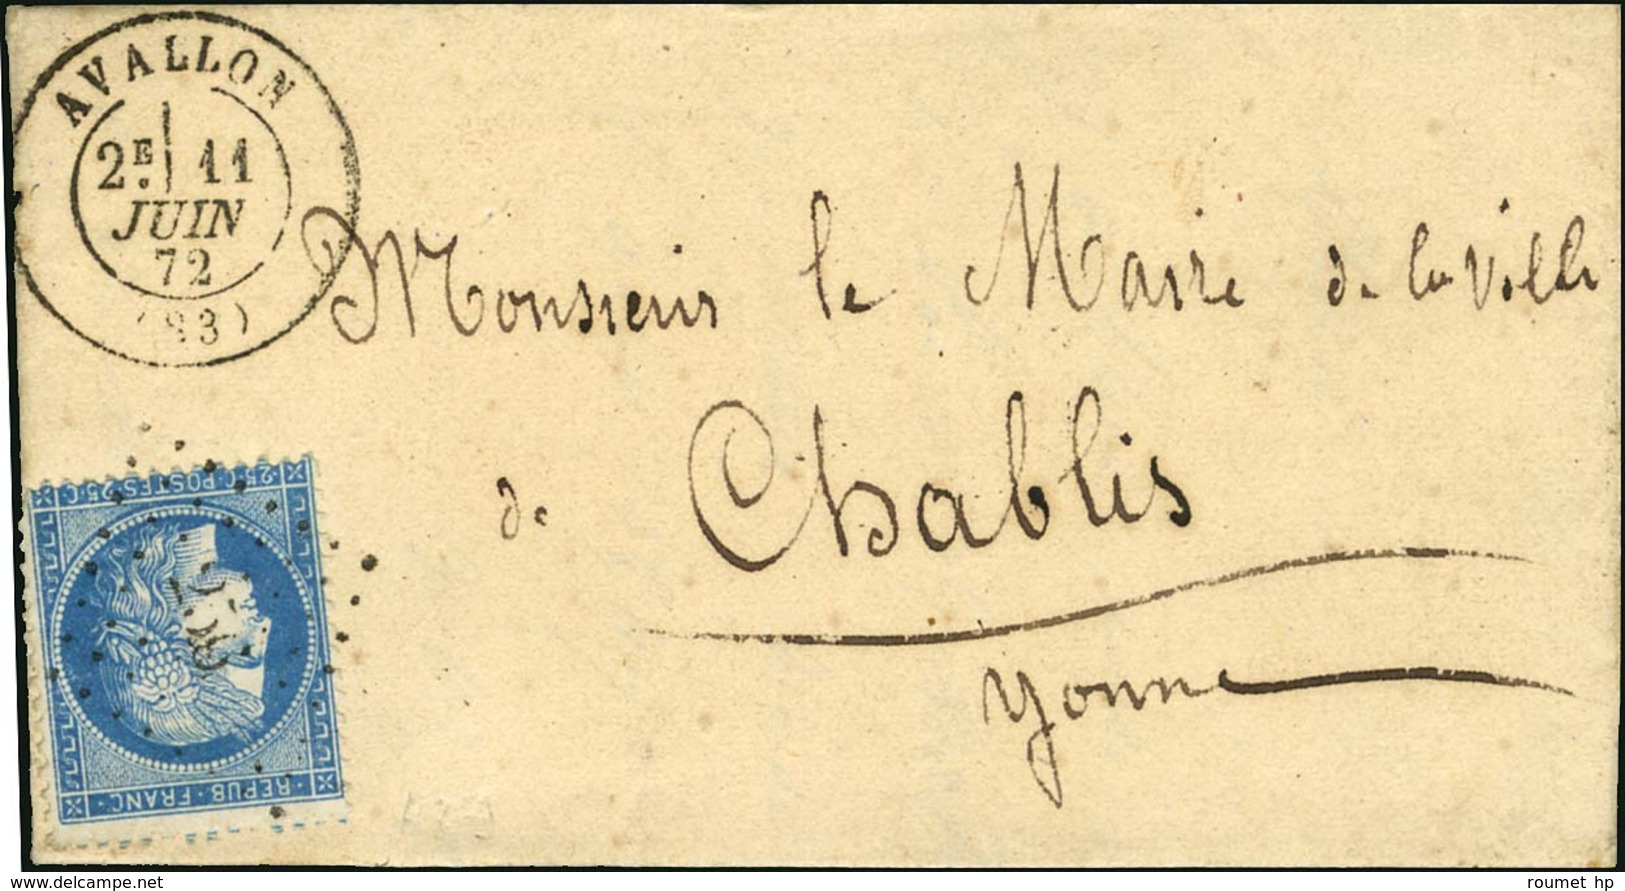 AVALLON
2E 11
JUIN
72
(83)
Monsieur le Maire de la Ville
de Chablis
Yonne
25 C · POSTES · 25 C
REPUB · FRANC ·
www.delcampe.net
roumet hp